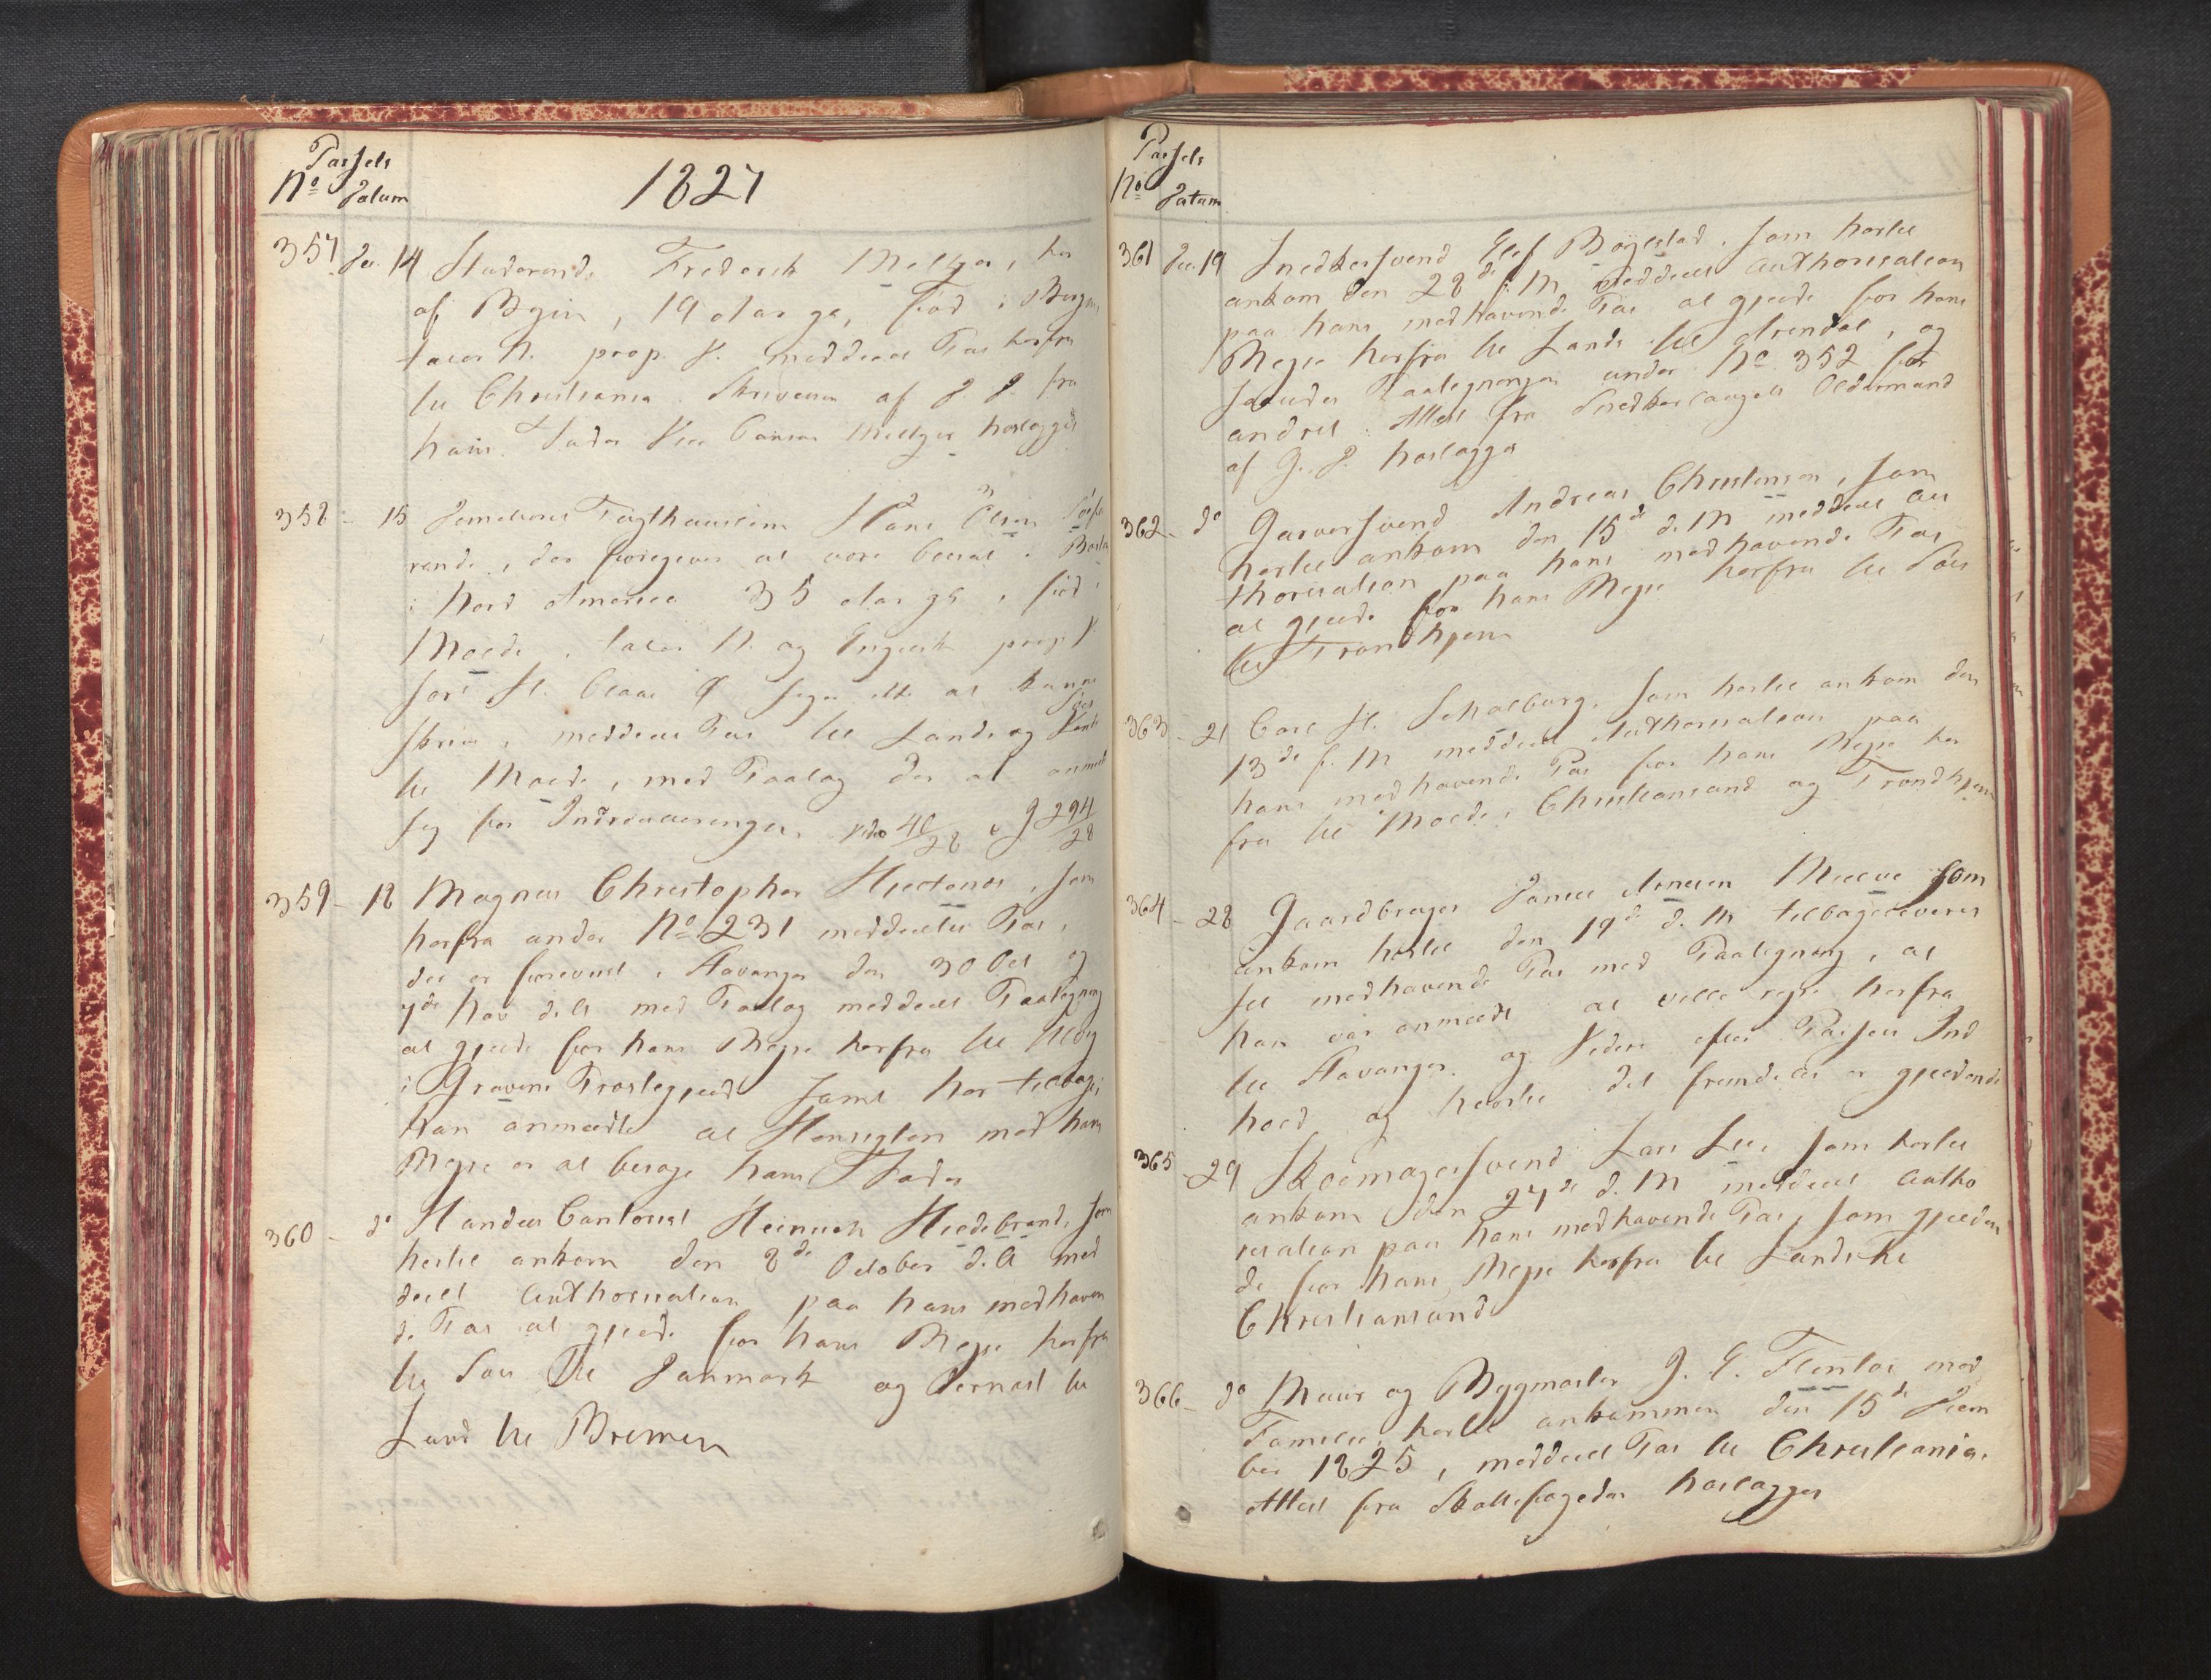 Passets
No Datum
1827
357 De. 14 Studerende Frederik Meltzer, her
af Byen, 19 Aar gl, fød i Bergen,
taler N. prop. V. meddeelt Pas herfra
til Christiania. Skrivelse af D. D. fra
hans Fader Hr Consul Meltzer henlagges
358 - 15 Hans Olsen
rende, der foregiver at være bosat i
i Nord America 35 Aar gl, fød i
Molde, taler N. og Engelsk prop. V.
sort H. blaae Ø siger ikke at kunne
skrive, meddeelt Pas til Lands og Vands
til Molde, med Paalæg der at anmelde
sig for
359 - 18 Magnus Christopher, som
herfra under No 231 meddeeltes Pas,
der er foreviist i Stavanger den 30 Oct og
7de Nov d. A. med Paalæg meddeelt Paategning
at gjælde for hans Reyse herfra til
i Gravens Præstegjeld samt her tilbage;
Han anmeldte at Hensigten med hans
Reyse er at besøge hans Fader
360 - do Handels Contorist Heinrich Hildebrandt som
hertil ankom den 8de October d. A. med
deelt Authorisation paa hans medhaven
de Pas at gjelde for hans Reyse herfra
til Søes til Danmark og dernæst til
Land til Bremen
Passets
No Datum
361 Dec. 19 Snedkersvend Elef Bøylestad, som hertil
ankom den 28de f. M meddeelt Authorisation
paa hans medhavende Pas at gjelde for hans
Reyse herfra til Lands til Arendal, og
saaledes Paategningen under No 352 for
andret. Attest fra Snedkerlaugets Oldermand
af D. D. henlagges
362 - do Garversvend Andreas Christensen, som
hertil ankom den 15de d. M meddeelt Au
thorisation paa hans medhavende Pas
at gjelde for hans Reyse herfra til Søes
til Trondhjem
363 - 21 Carl H. Schalburg, som hertil ankom den
13de f. M meddeelt Authorisation paa
hans medhavende Pas for hans Reyse her
fra til Molde, Christiansund og Trondhjem
364 - 28 Gaardbruger Arnesen som
ankom hertil den 19de d. M tilbageleveres
sit medhavende Pas med Paategning, at
han var anmeldt at ville reyse herfra
til Stavanger og videre efter Passets Ind
hold og hvortil det fremdeles er gjeldende
365 - 29 Skoemagersvend Lars Lie, som hertil
ankom den 27de d. M meddeelt Autho
risation paa hans medhavende Pas, som gjelden
de for hans Reyse herfra til Lands til
Christiansund
366 - do Muur og Bygmester J. G. med
Familie, hertil ankommen den 15de Decem
ber 1825, meddeelt Pas til Christiania.
Attest fra Skattefogeden henlagges